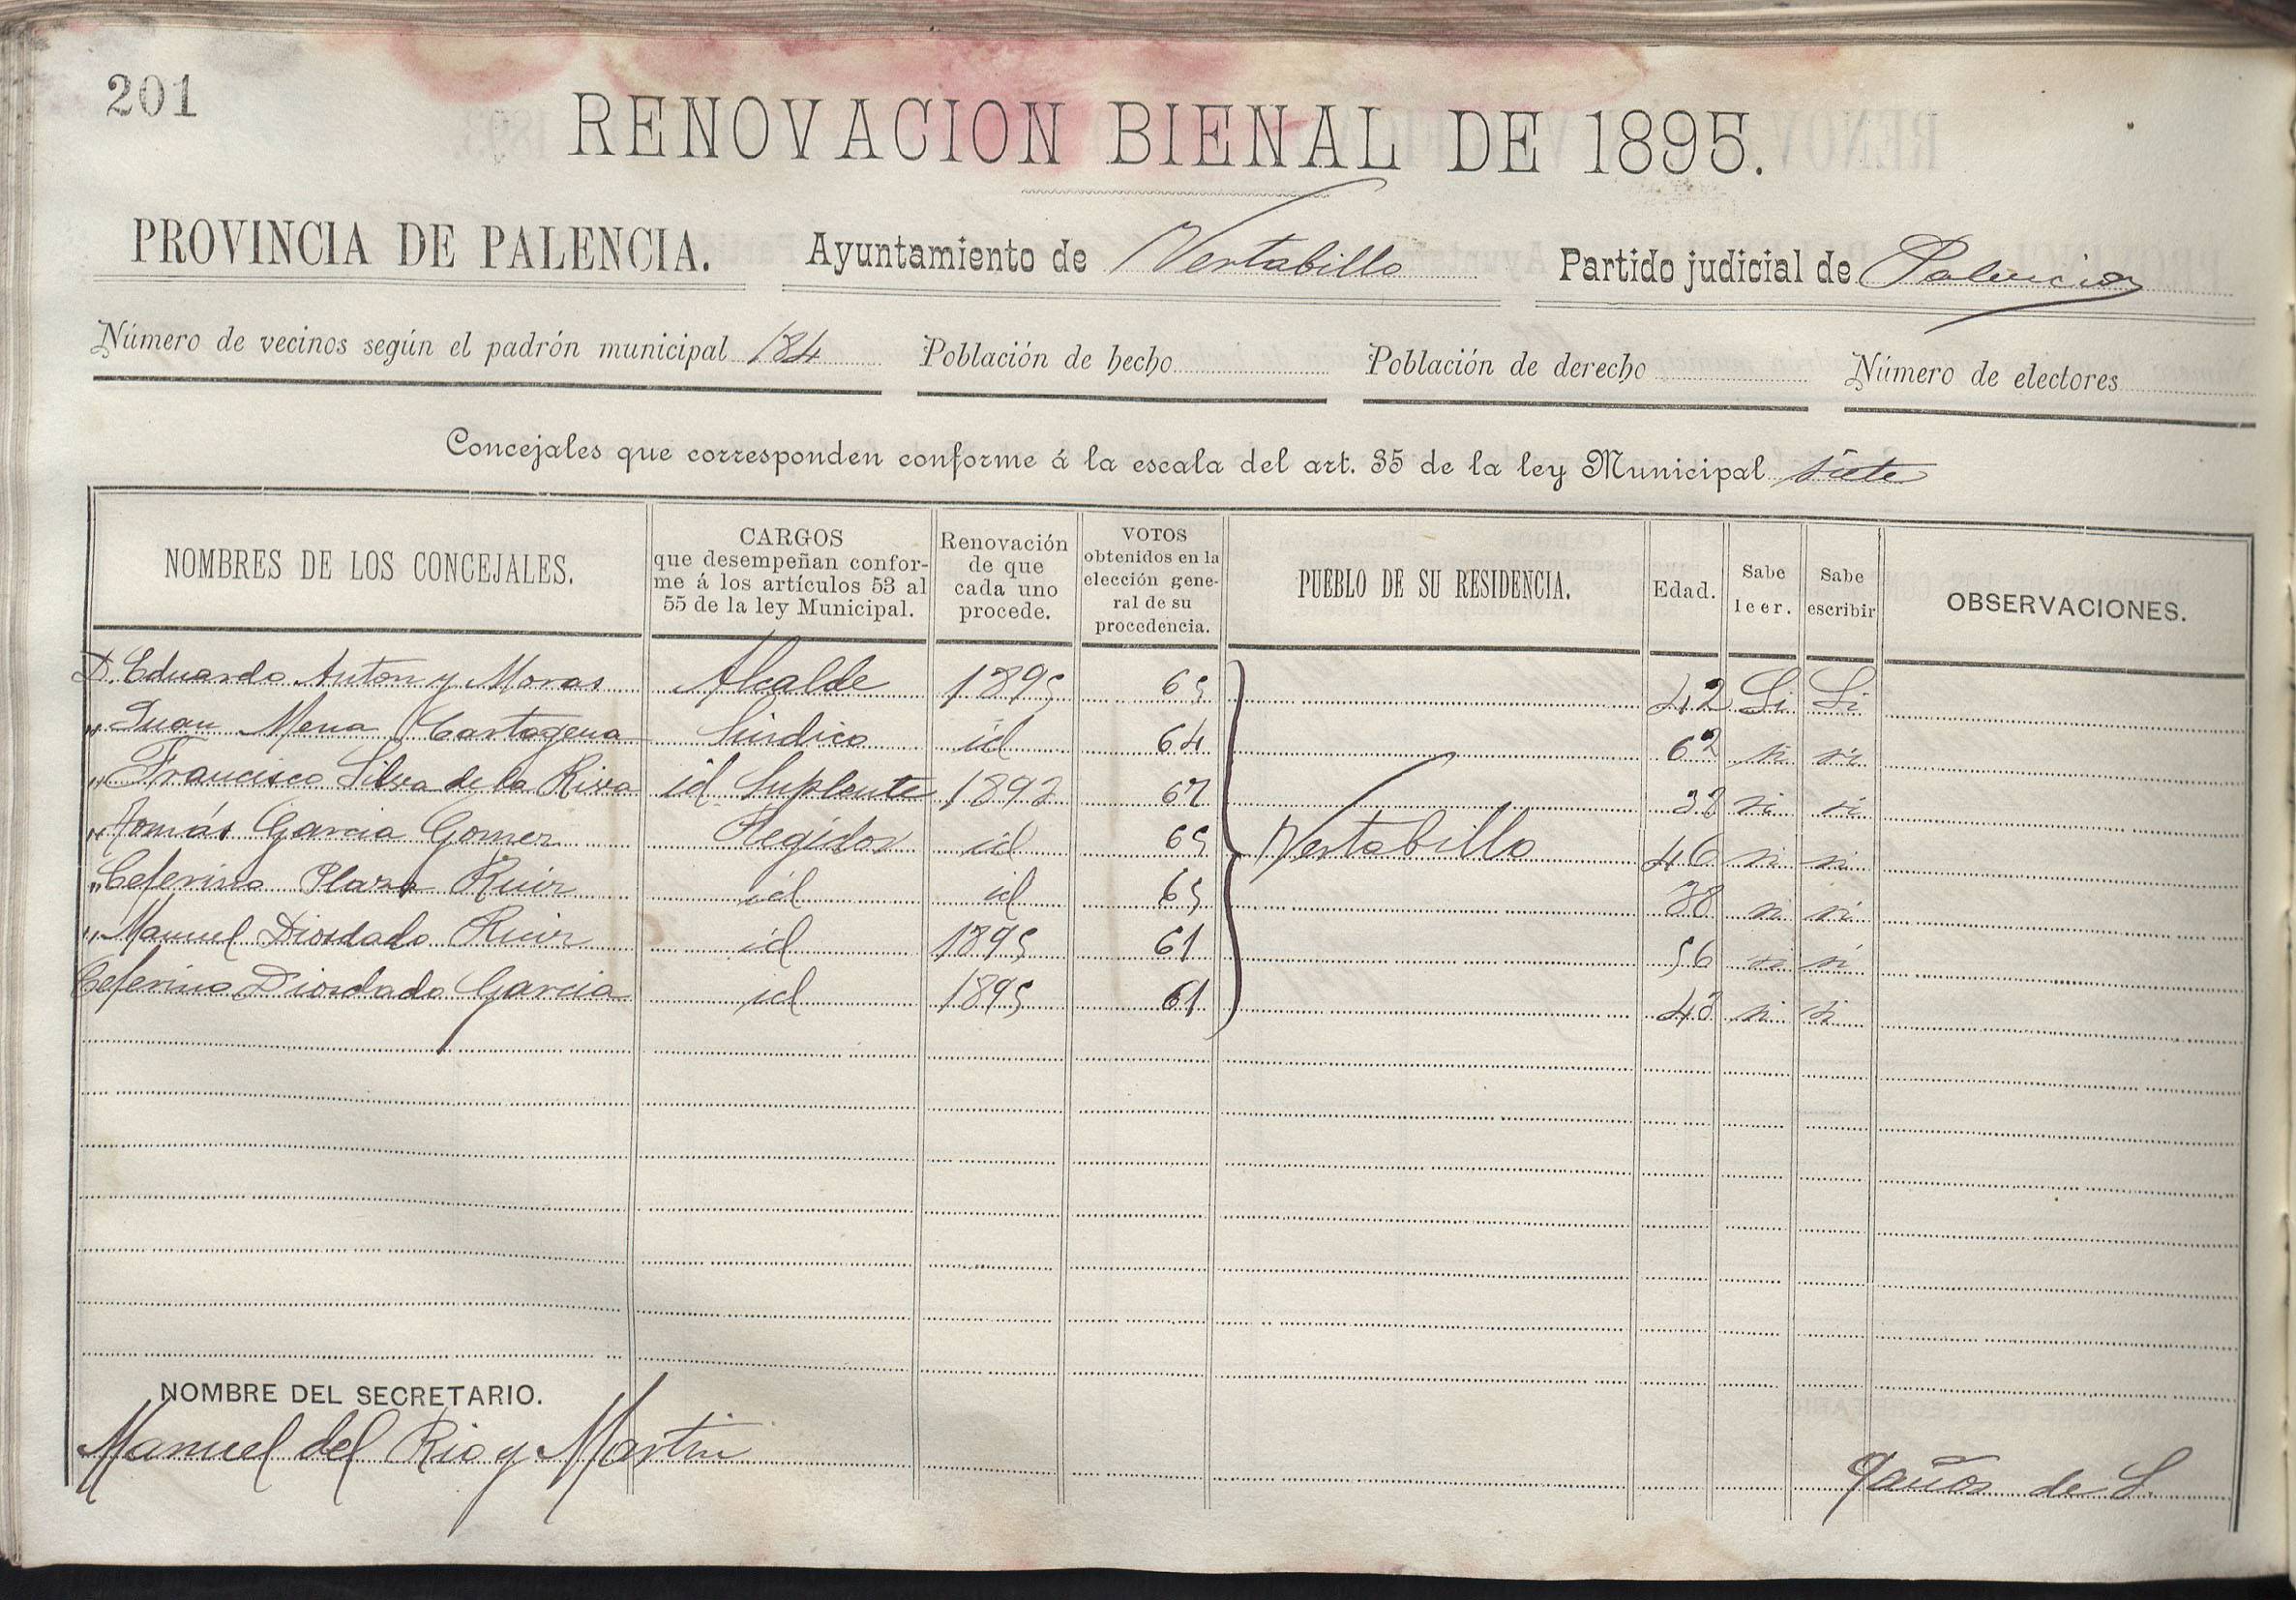 201
RENOVACION BIENAL DE 1895.
PROVINCIA DE PALENCIA. Ayuntamiento de Vertabillo Partido judicial de Palencia
Número de vecinos según el padrón municipal 184 Población de hecho Población de derecho Número de electores
Concejales que corresponden conforme á la escala del art. 35 de la ley Municipal siete
NOMBRES DE LOS CONCEJALES.
CARGOS
que desempeñan confor-
me á los artículos 53 al
55 de la ley Municipal.
Renovación
de que
cada uno
procede.
VOTOS
obtenidos en la
elección gene-
ral de su
procedencia.
PUEBLO DE SU RESIDENCIA.
Edad.
Sabe
leer.
Sabe
escribir
OBSERVACIONES.
D. Eduardo Anton y Moras Alcalde 1895 65 42 Si Si
" Juan Mena Cartagena Sindico id 64 62 si si
" Francisco Silva de la Riva id Suplente 1893 67 si si
" Tomás Garcia Gomez Regidor id 65 Vertabillo 46 si si
" Ceferino Plaza Ruiz id id 65 38 si si
" Manuel Diosdado Ruiz id 1895 61 56 si si
Ceferino Diosdado Garcia id 1895 61 43 si si
NOMBRE DEL SECRETARIO.
Manuel del Rio y Martin
9 años de S.